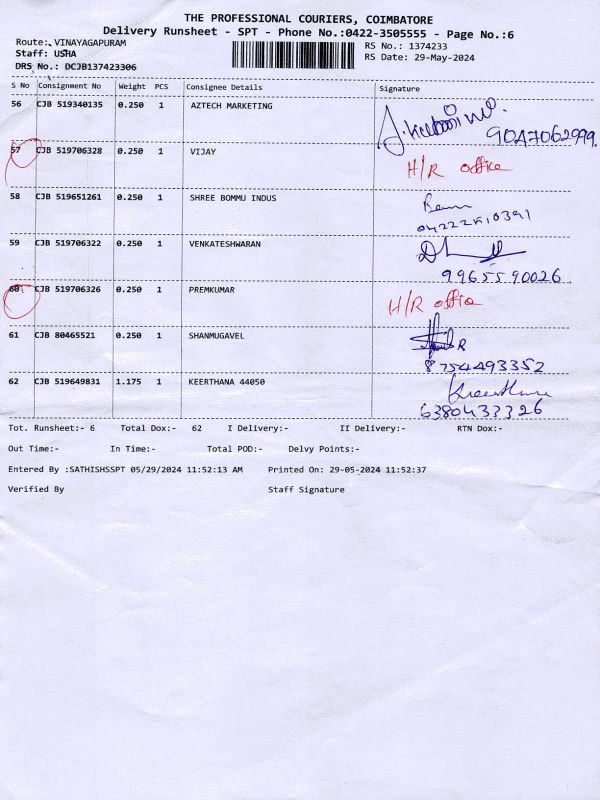 THE PROFESSIONAL COURIERS, COIMBATORE
Delivery Runsheet - SPT - Phone No.:0422-3505555 - Page No.:6
Route: VINAYAGAPURAM RS No.: 1374233
Staff: USHA RS Date: 29-May-2024
DRS No.: DCJB137423306
S No Consignment No Weight PCS Consignee Details Signature
56 CJB 519340135 0.250 1 AZTECH MARKETING
9047062999.
57 CJB 519706328 0.250 1 VIJAY
H/R office
58 CJB 519651261 0.250 1 SHREE BOMMU INDUS
59 CJB 519706322 0.250 1 VENKATESHWARAN
9965590026
60 CJB 519706326 0.250 1 PREMKUMAR
H/R office
61 CJB 80465521 0.250 1 SHANMUGAVEL
8754493352
62 CJB 519649831 1.175 1 KEERTHANA 44050
6380433326
Tot. Runsheet:- 6 Total Dox:- 62 I Delivery:- II Delivery:- RTN Dox:-
Out Time:- In Time:- Total POD:- Delvy Points:-
Entered By :SATHISHSSPT 05/29/2024 11:52:13 AM Printed On: 29-05-2024 11:52:37
Verified By Staff Signature